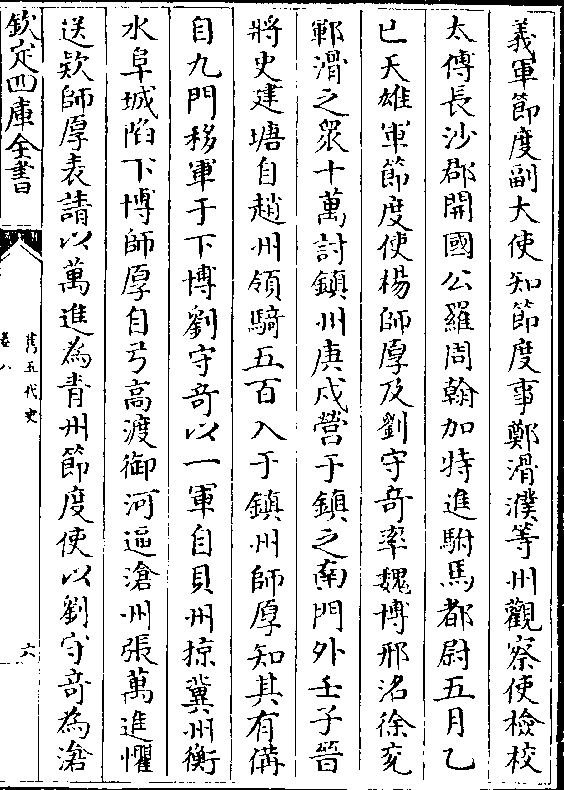 義軍節度副大使知節度事鄭滑濮等州觀察使檢校
太傅長沙郡開國公羅周翰加特進駙馬都尉五月乙
巳天雄軍節度使楊師厚及劉守竒率魏博邢洺徐兖
鄆滑之衆十萬討鎮州庚戌營于鎮之南門外壬子晉
將史建瑭自趙州領騎五百入于鎮州師厚知其有備
自九門移軍于下博劉守竒以一軍自貝州掠冀州衡
水阜城陷下博師厚自弓高渡御河逼滄州張萬進懼
送欵師厚表請以萬進為青州節度使以劉守竒為滄
欽定四庫全書
舊五代史
卷八
六